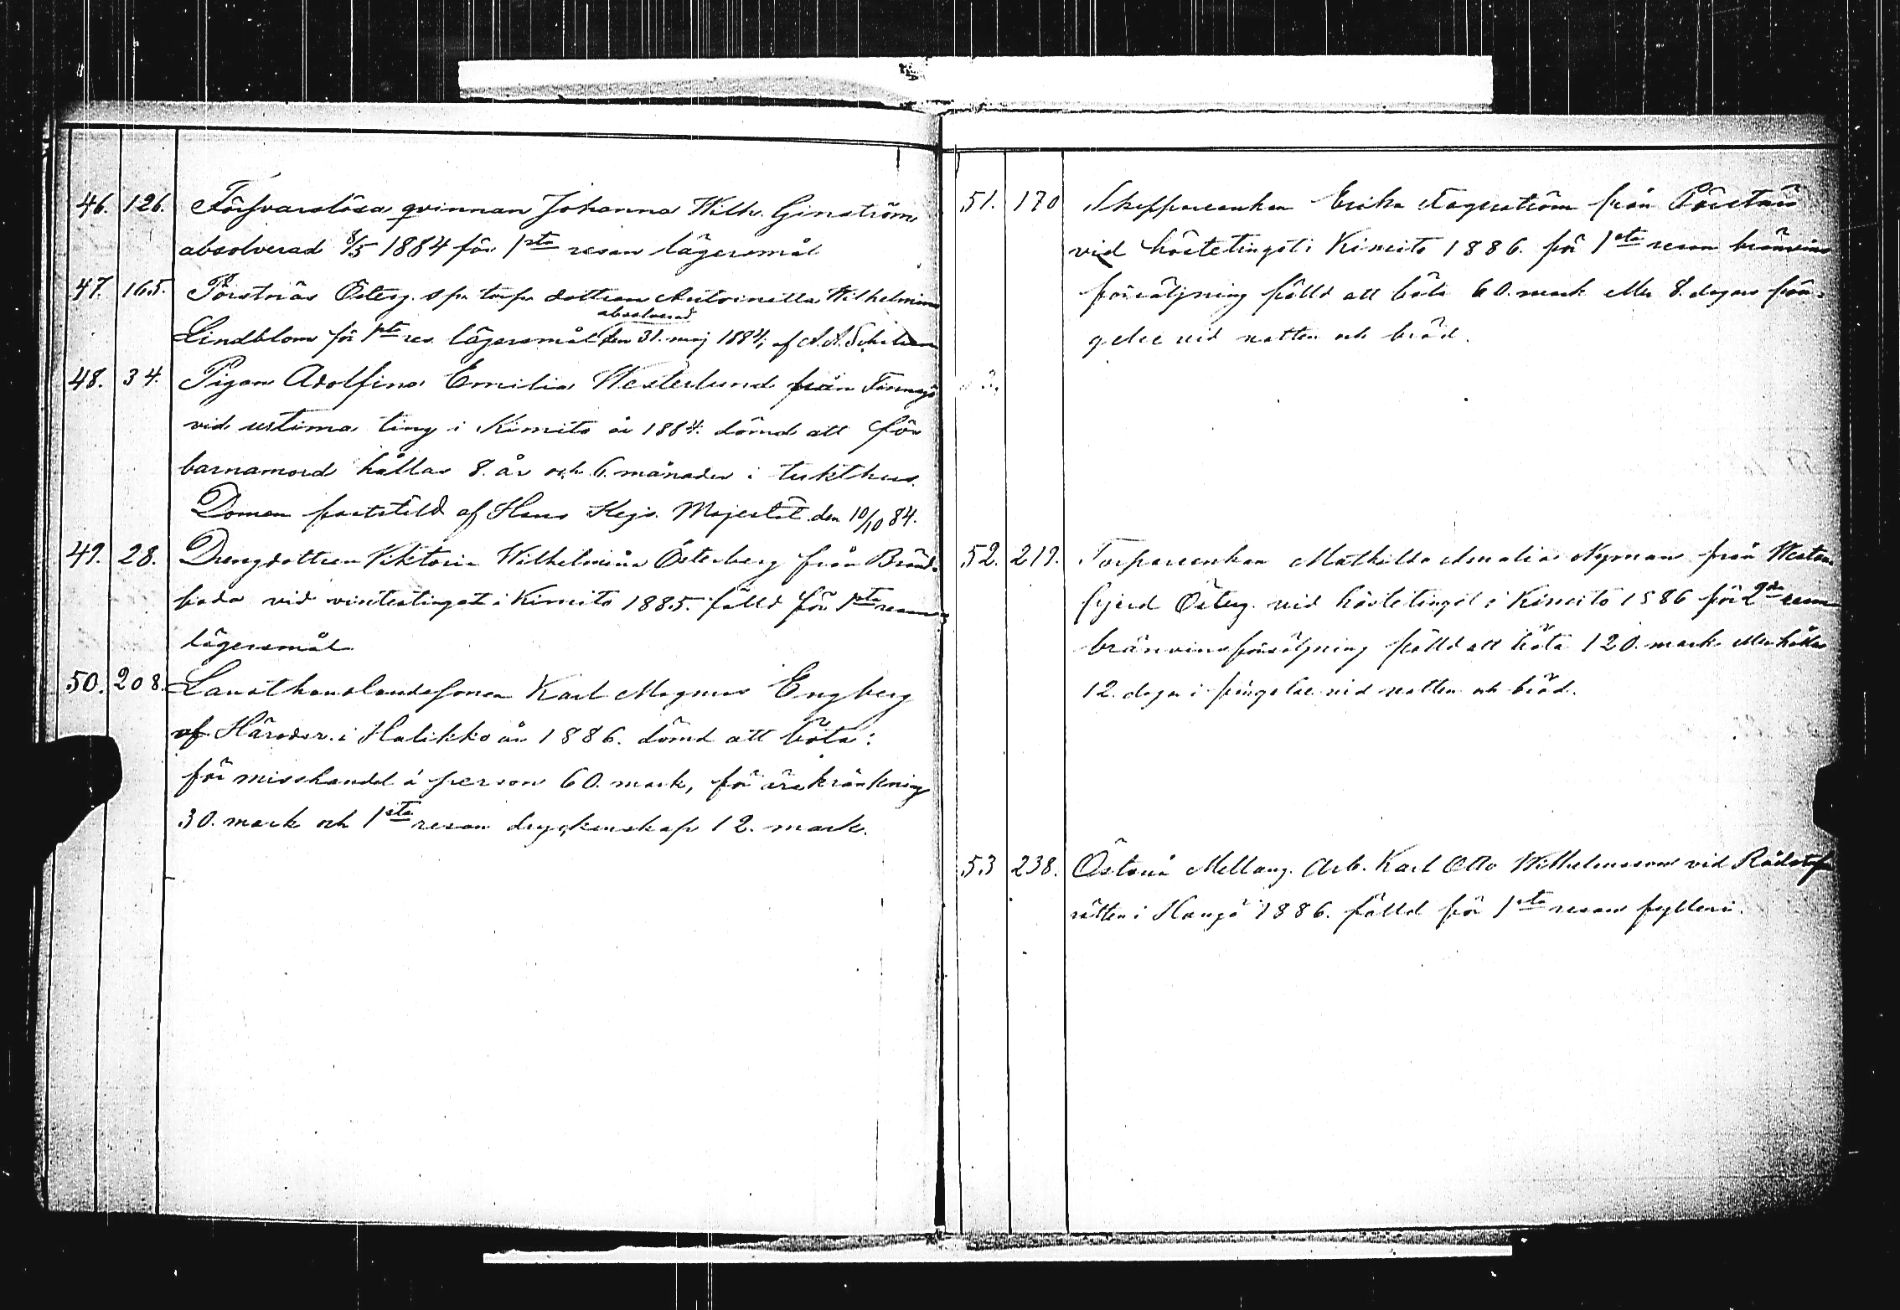 46. 126. Försvarslösa qvinnan Johanna Wilh. Ginström
absolverad 8/5 1884 för 1sta resan lägersmål
47. 165. Pörstnäs Österg. dottren Antoinetta Wilhelmina
absolverad
Lindblom för 1sta res. lägersmål den 31. maj 1884, af A. A.
48. 34. Pigan Adolfina Emilia Westerlund från
vid urtima ting i Kimito år 1884. dömd att för
barnamord hållas 8. år och 6. månader i tukthus.
Domen fastställd af Hans Kejs. Majestät den 10/10 84.
49. 28. Drengdottren Viktoria Wilhelmina Österberg från
boda vid vintertinget i Kimito 1885. fälld för 1sta resan
lägersmål
50. 208. Karl Magnus Engberg
af Häradsr. i Halikko år 1886. dömd att böta:
för misshandel å person 60. mark, för ärekränkning
30. mark och 1sta resan dryckenskap 12. mark.
51. 170 Skepparenkan Erika Fagerström från Pörstnäs
vid höstetinget i Kimito 1886. för 1sta resan bränvins
försäljning fälld att böta 60. mark eller 8. dagars fän-
gelse vid vatten och bröd.
52. 219. Torparenkan Mathilda Amalia Nyman från Westan
fjerd Österg. vid höstetinget i Kimito 1886 för 2dra resan
bränvinsförsäljning fälld att böta 120. mark eller hållas
12. dagar i fängelse vid vatten och bröd.
53 238. Östanå Mellang. Arb. Karl Otto Wilhelmsson vid Rådstuf
rätten i Hangö 1886. fälld för 1sta resan fylleri.